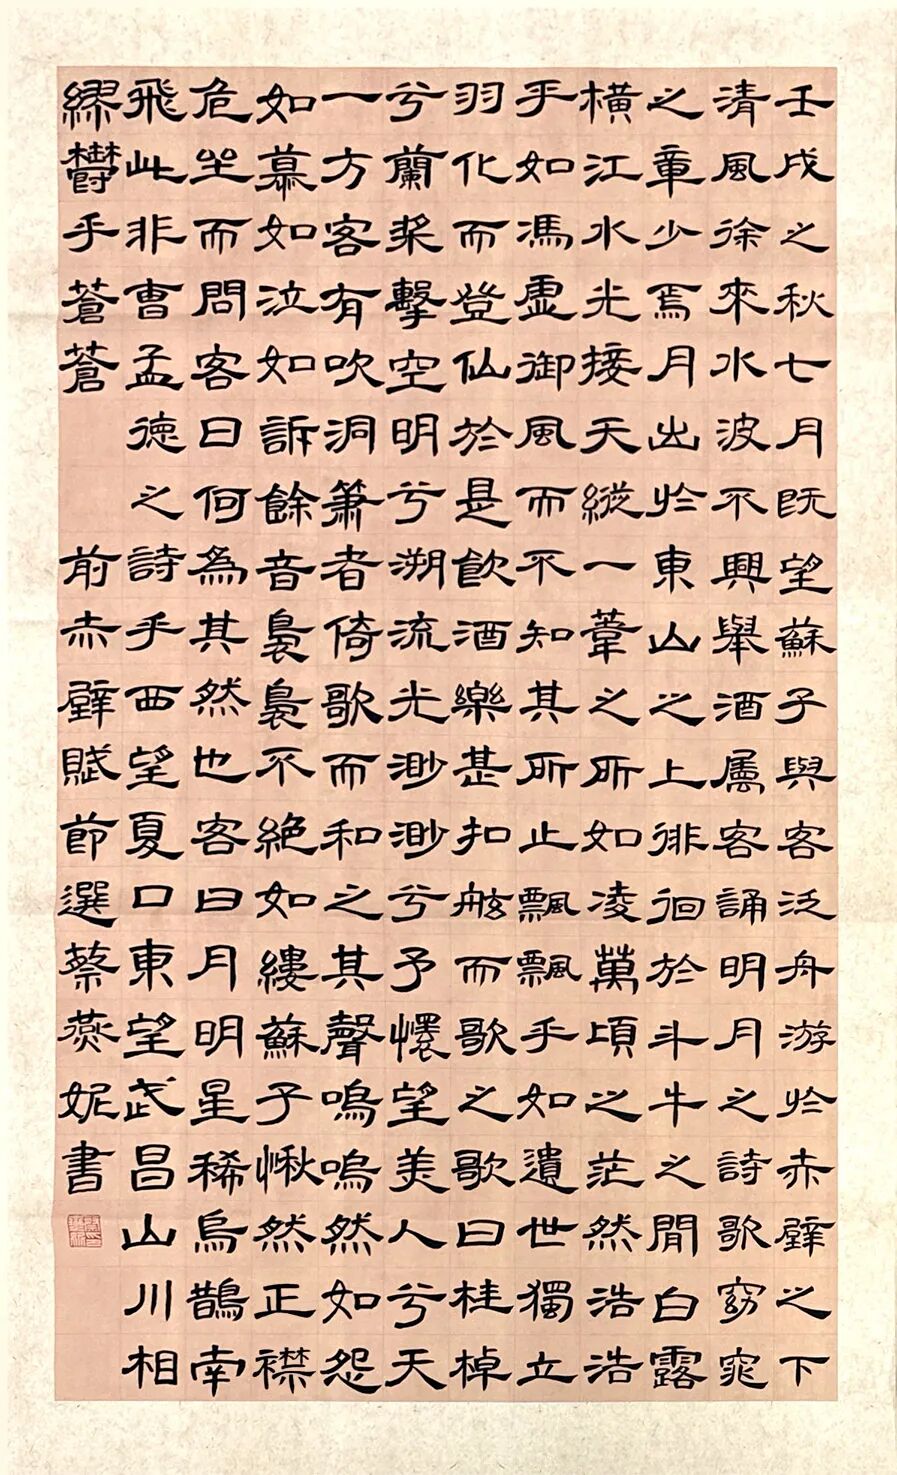 壬戌之秋七月既望蘇子與客泛舟游於赤壁之下
清風徐來水波不興舉酒属客誦明月之詩歌窈窕
之章少焉月出於東山之上徘徊於斗牛之間白露
橫江水光接天縱一葦之所如凌萬頃之茫然浩浩
乎如馮虛御風而不知其所止飄飄乎如遺世獨立
羽化而登仙於是飲酒樂甚扣舷而歌之歌曰桂棹
兮蘭槳擊空明兮溯流光渺渺兮予懷望美人兮天
一方客有吹洞簫者倚歌而和之其聲嗚嗚然如怨
如慕如泣如訴餘音裊裊不絕如縷蘇子愀然正襟
危坐而問客曰何為其然也客曰月明星稀烏鵲南
飛此非曹孟德之詩乎西望夏口東望武昌山川相
繆鬱乎蒼蒼 前赤壁賦節選蔡燕妮書